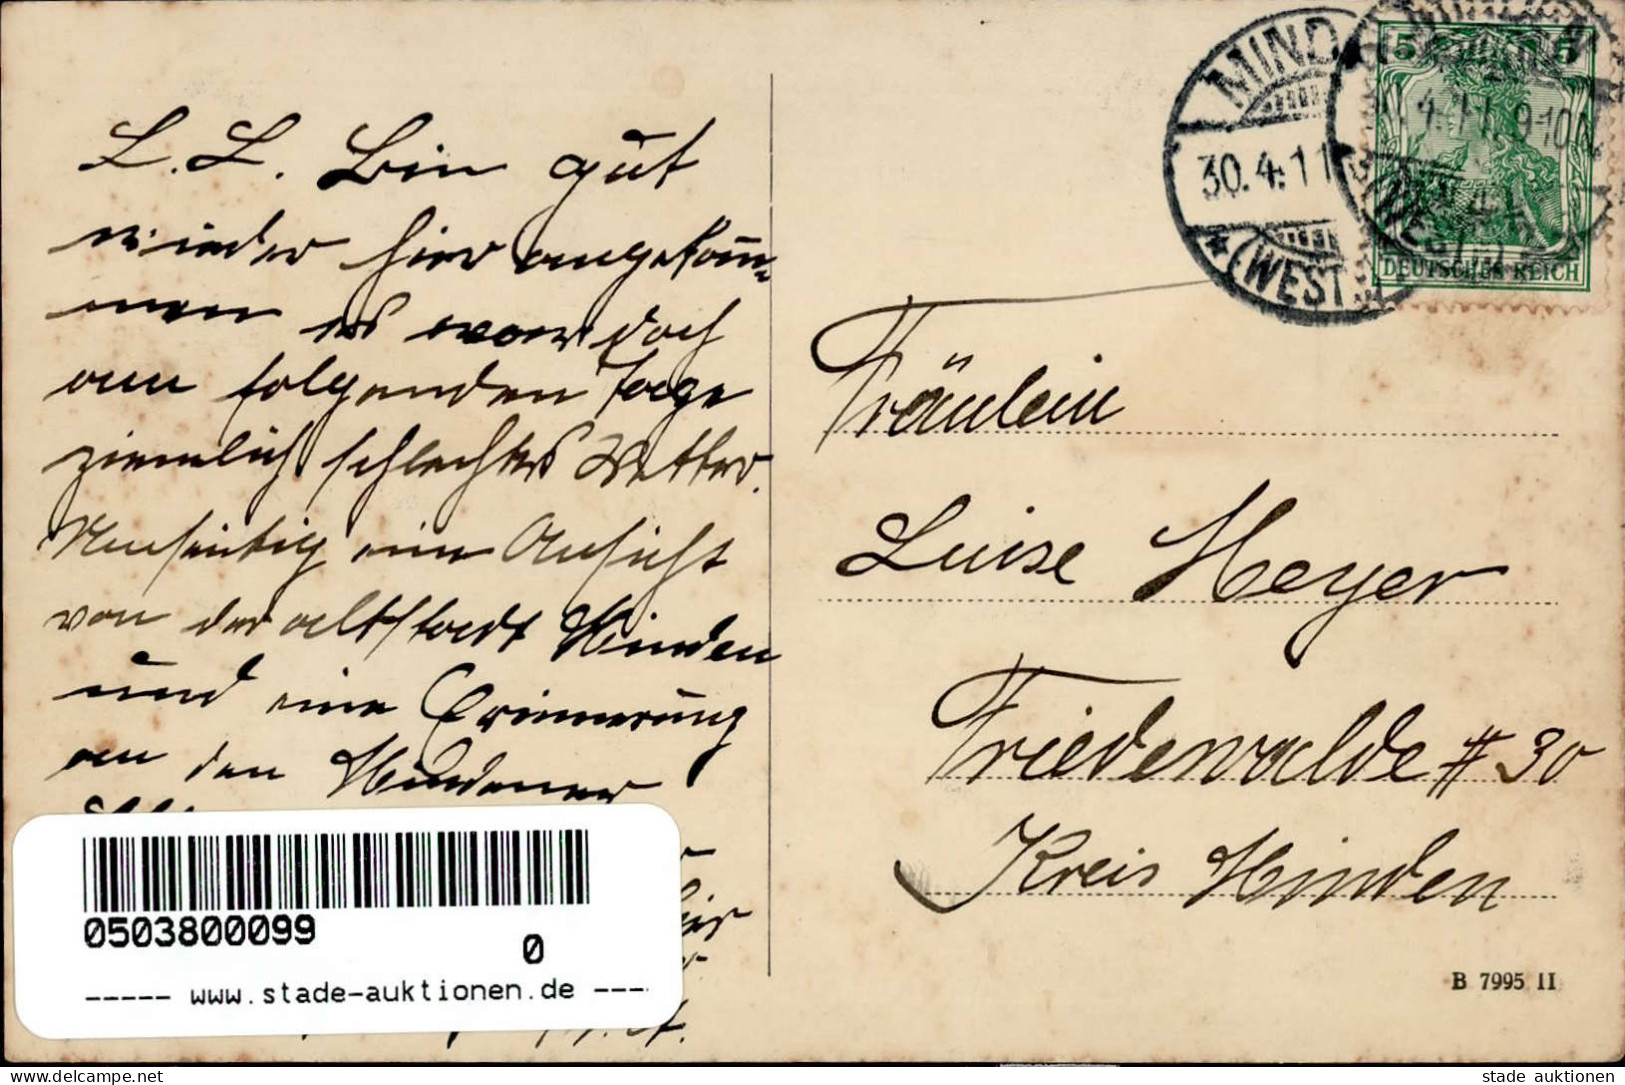 L. L. Bin gut
wieder hier angekom-
men es war doch
am folgenden Tage
ziemlich schlechtes Wetter.
Umseitig eine Ansicht
von der altstadt Minden
und eine Erinnerung
an den Mindener
hier
MINDEN
30.4.11
(WESTF.)
4.11. 9-10N
5 5
DEUTSCHES REICH
Fräulein
Luise Meyer
Friedewalde # 30
Kreis Minden
B 7995 II
0503800099
0
----- www.stade-auktionen.de ---
www.delcampe.net
stade auktionen